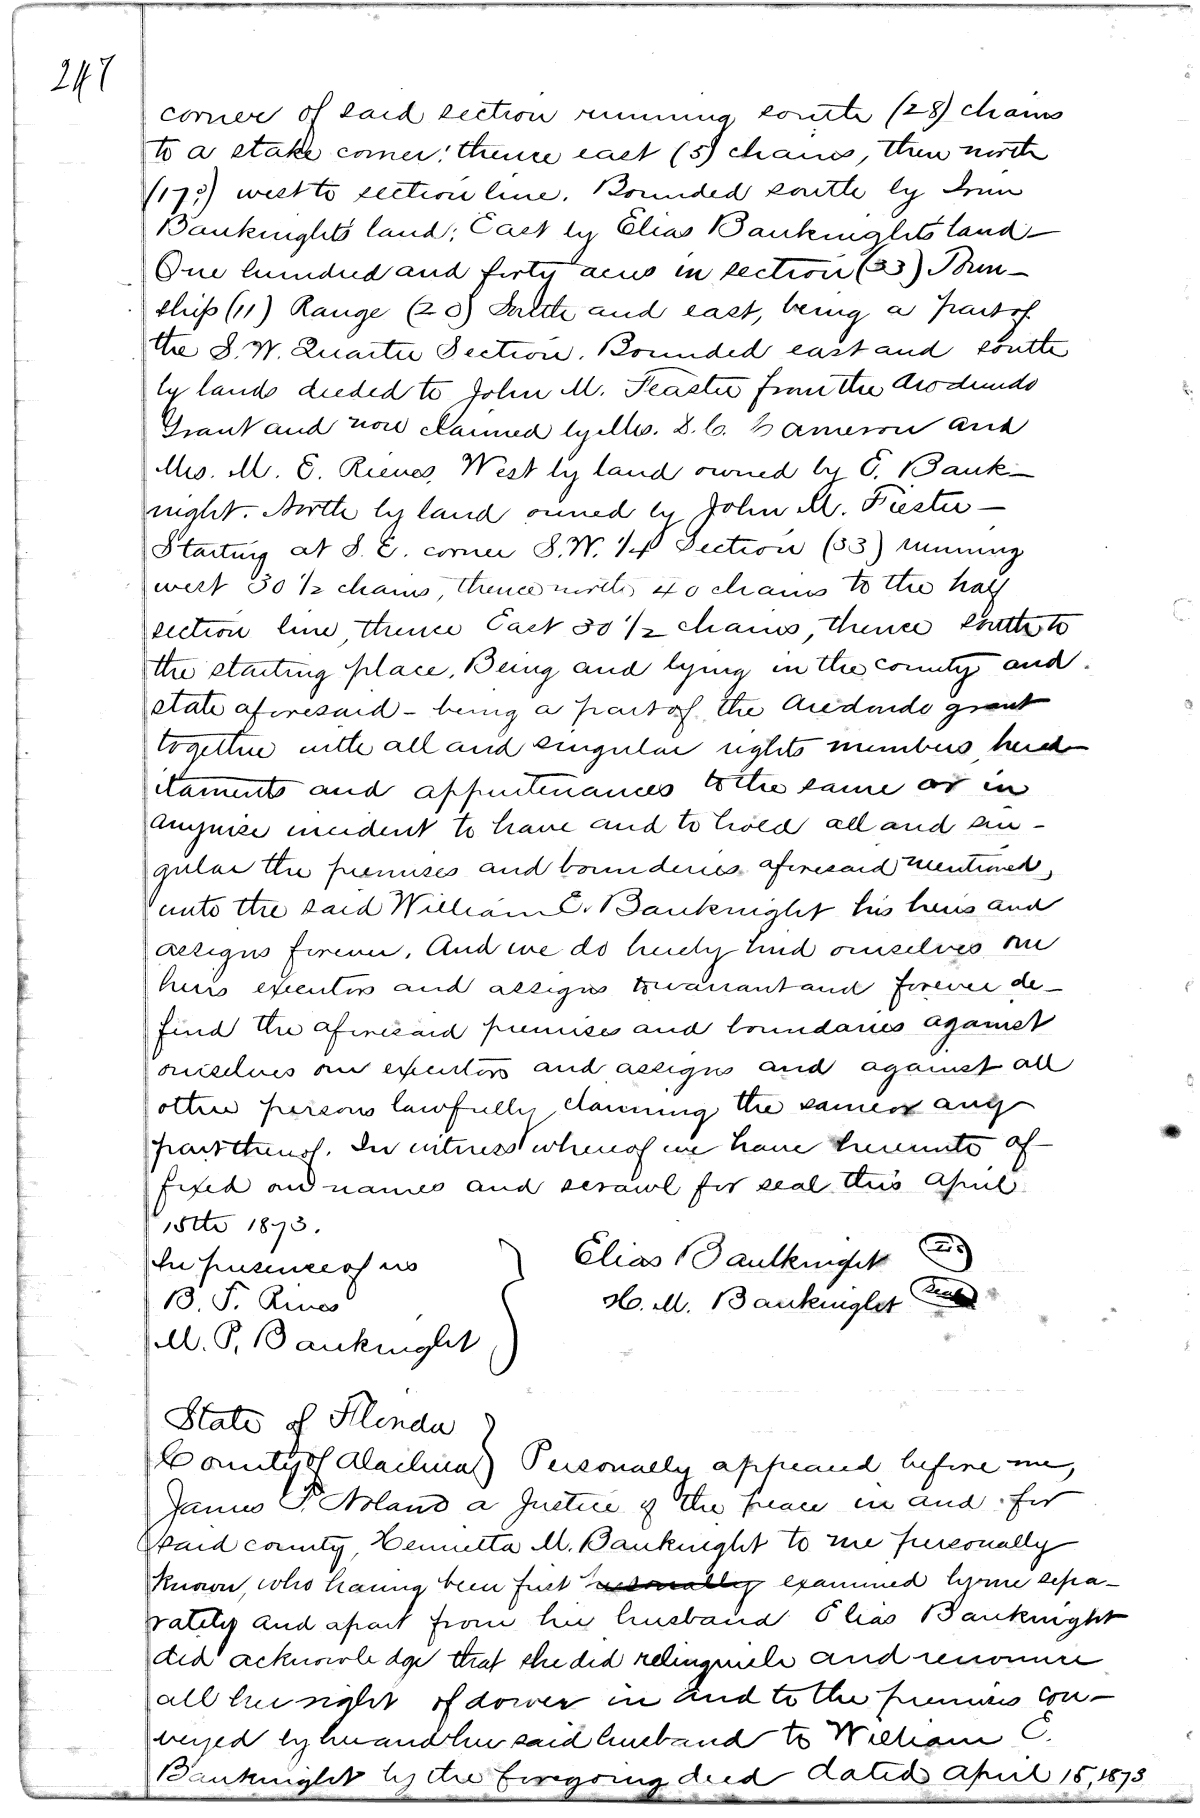 247
corner of said section running south (28) chains
to a stake corner; thence east (5) chains, then north
west to section line. Bounded south by
Bauknight's land; East by Elias Bauknight's land—
One hundred and forty acres in section (33) Town-
ship (11) Range (20) South and east, being a part of
the S.W. Quarter Section. Bounded east and south
by lands deeded to John M. Feaster from the Arodondo
Grant and now claimed by Mrs. D. C. Cameron and
Mrs. M. E. Rieves, West by land owned by E. Bauk-
night. North by land owned by John M. Fiester—
Starting at S. E. corner S.W. 1/4 Section (33) running
west 30 1/2 chains, thence north 40 chains to the half
section line, thence East 30 1/2 chains, thence south to
the starting place. Being and lying in the county and
state aforesaid - being a part of the Aredondo grant
together with all and singular rights members hered-
itaments and appurtenances to the same or in
anywise incident to have and to hold all and sin-
gular the premises and bounderies aforesaid mentioned,
unto the said William E. Bauknight his heirs and
assigns forever. And we do hereby bind ourselves our
heirs executors and assigns to warrant and forever de-
fend the aforesaid premises and boundaries against
ourselves our executors and assigns and against all
other persons lawfully claiming the same or any
part thereof. In witness whereof we have hereunto af-
fixed our names and scrawl for seal this April
15th 1873.
In presence of us
Elias Baulknight
B. F. Rives
H. M. Bauknight Seal
M. P. Bauknight
State of Florida
County of Alachua } Personally appeared before me,
James P. Noland a Justice of the peace in and for
said county, Henrietta M. Bauknight to me personally
known, who having been first personally examined by me sepa-
rately and apart from her husband Elias Bauknight
did acknowledge that she did relinquish and renounce
all her right of dower in and to the premises con-
veyed by her and her said husband to William E.
Bauknight by the foregoing deed dated April 15, 1873